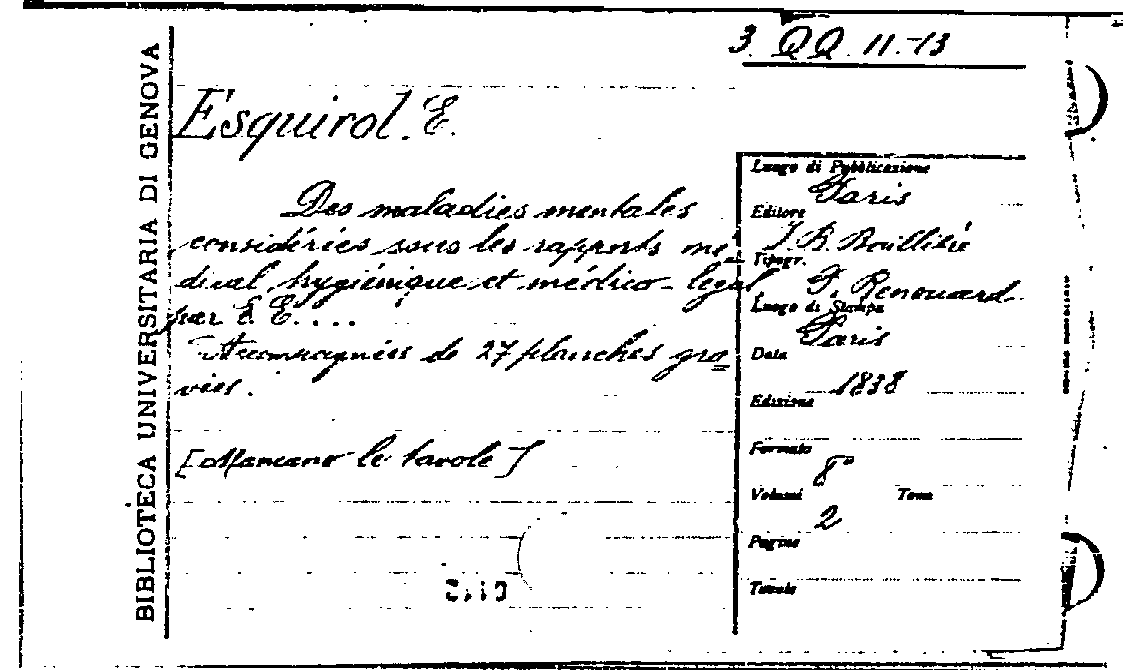 3. QQ. 11.-13
BIBLIOTECA UNIVERSITARIA DI GENOVA
Esquirol. E.
Des maladies mentales
considérées sous les rapports mé-
dical, hygiénique et médico-légal,
par E. E. . . .
Accompagnées de 27 planches gra=
vées.
[Mancano le tavole]
Luogo di Pubblicazione
Paris
Editore
J. B. Baillière
Tipogr.
F. Renouard
Luogo di Stampa
Paris
Data
1838
Edizione
Formato
8°
Volumi Tomo
2
Pagine
Tavole